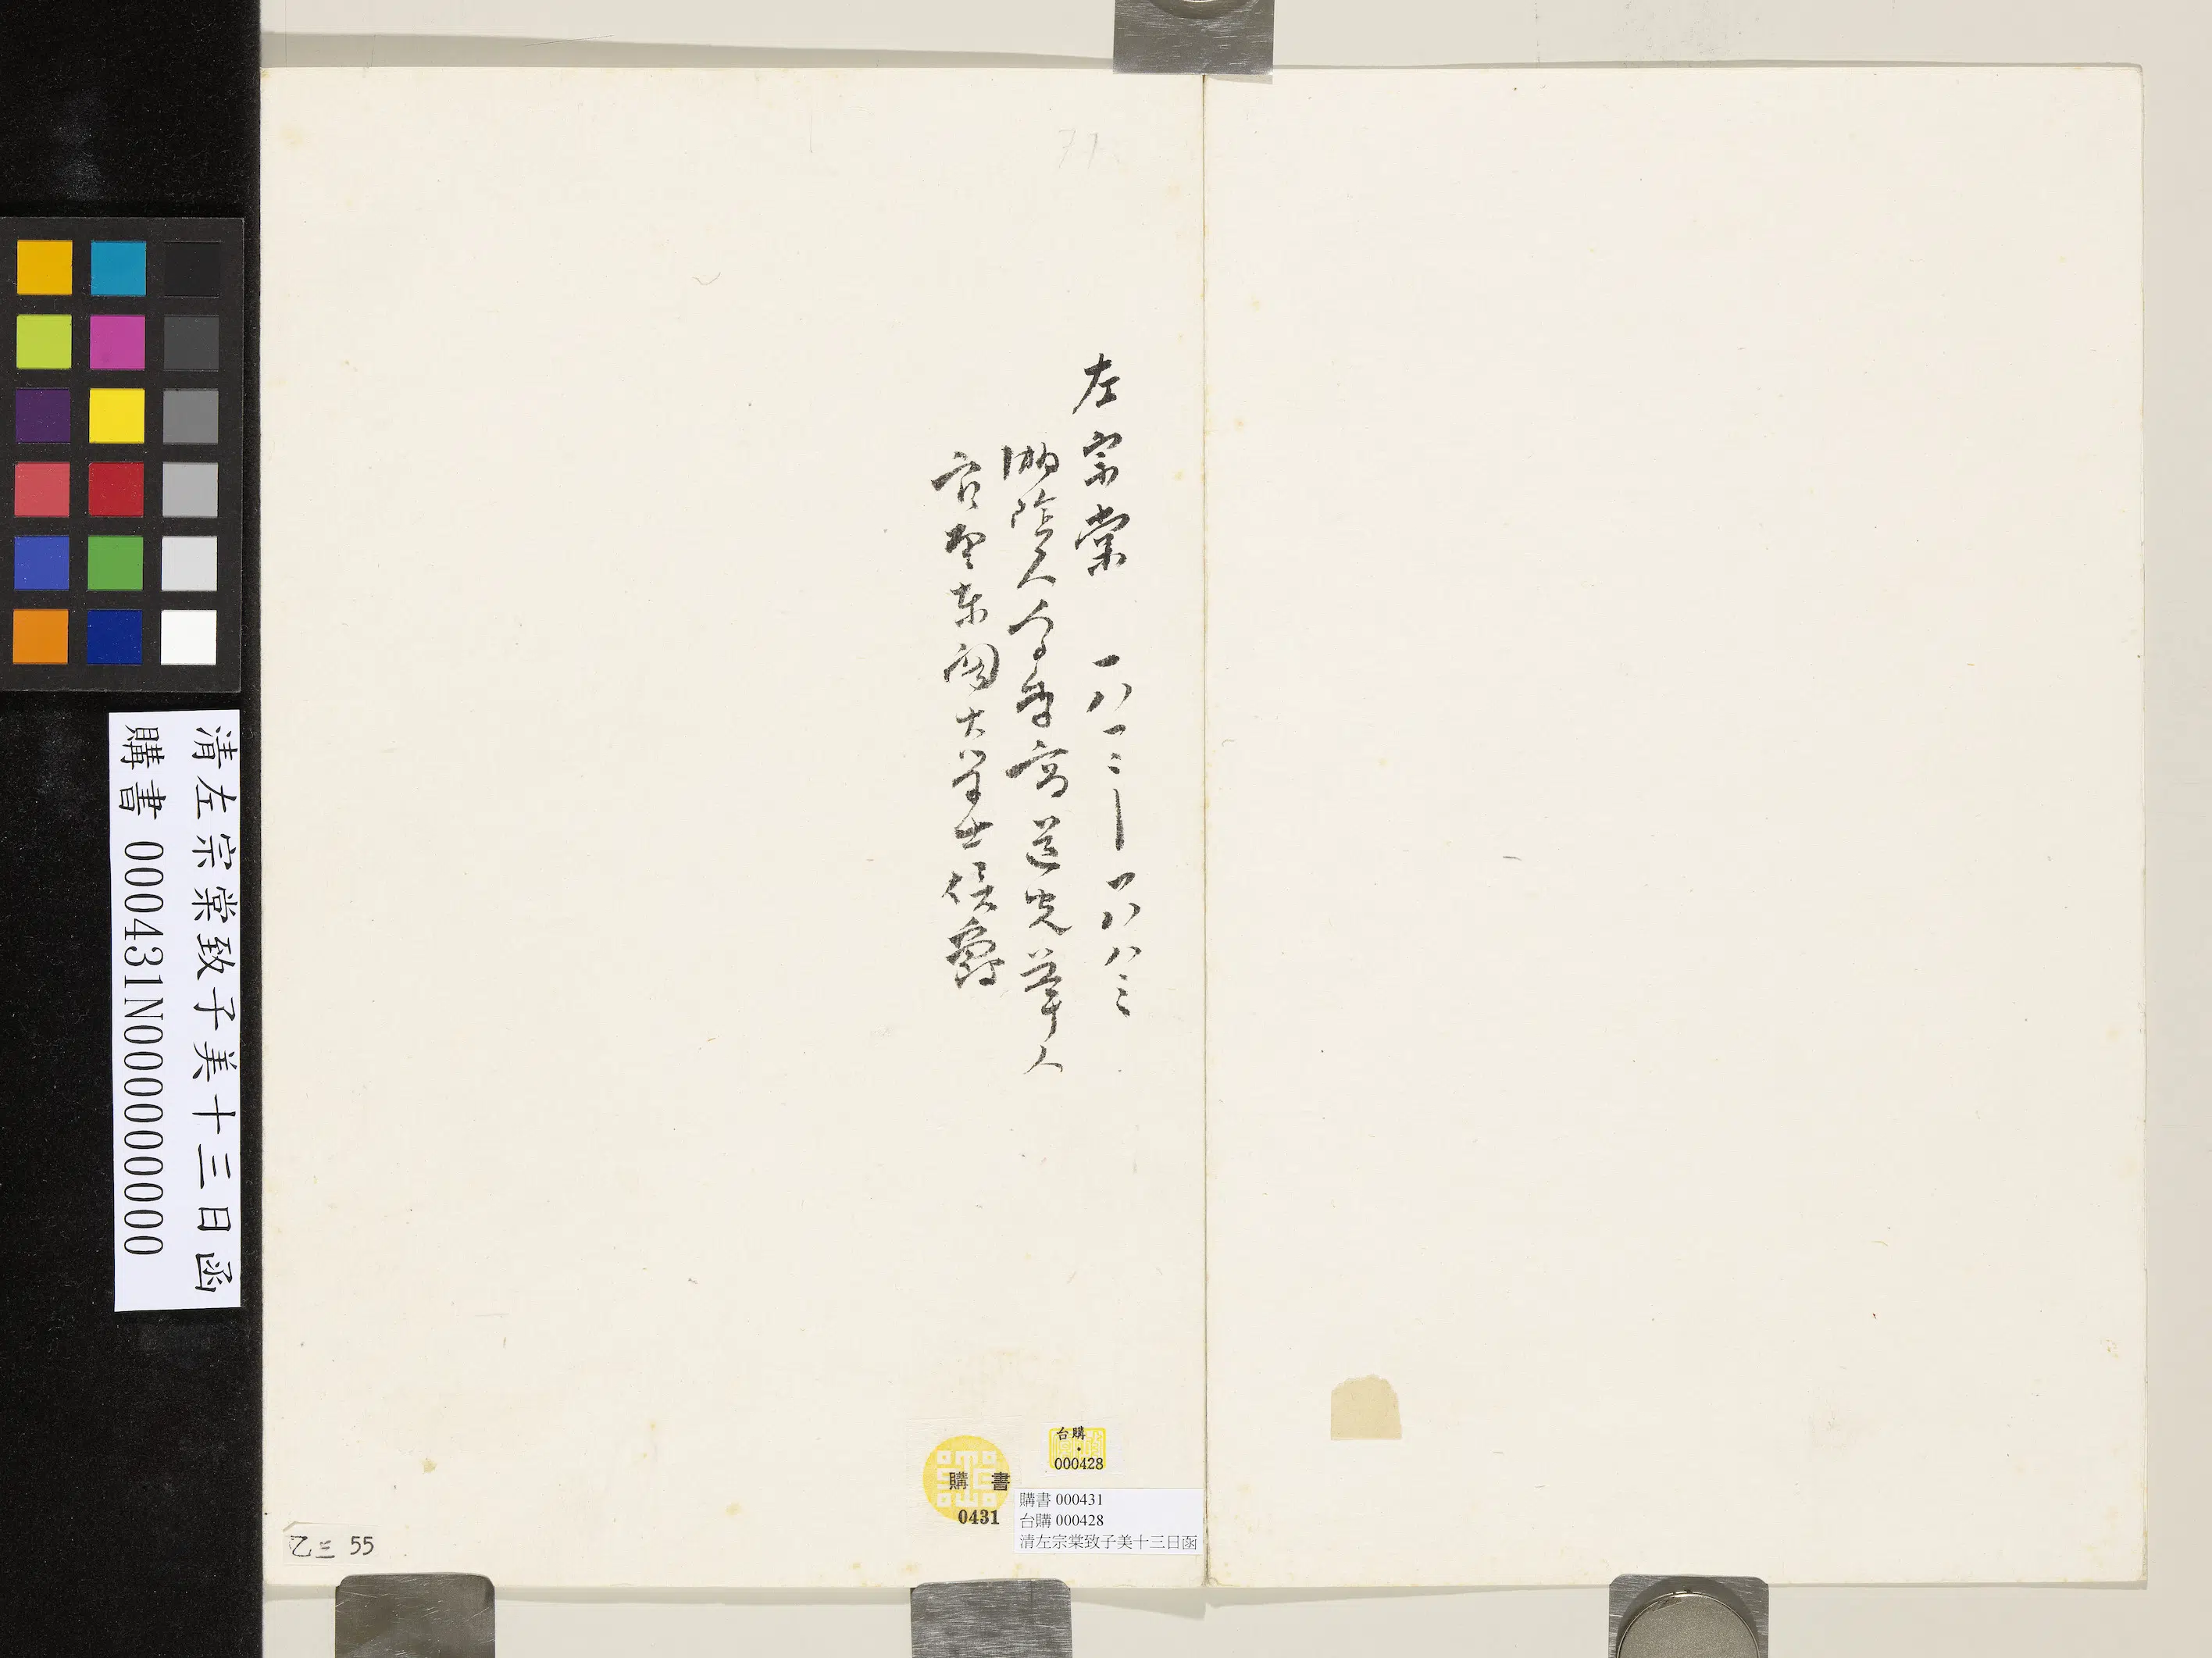 左宗棠 一八一二—一八八三
湘陰人字季高道光舉人
官至東閣大學士侯爵
清左宗棠致子美十三日函
購書 000431N000000000
台購
000428
購書
0431
購書 000431
台購 000428
清左宗棠致子美十三日函
乙三 55